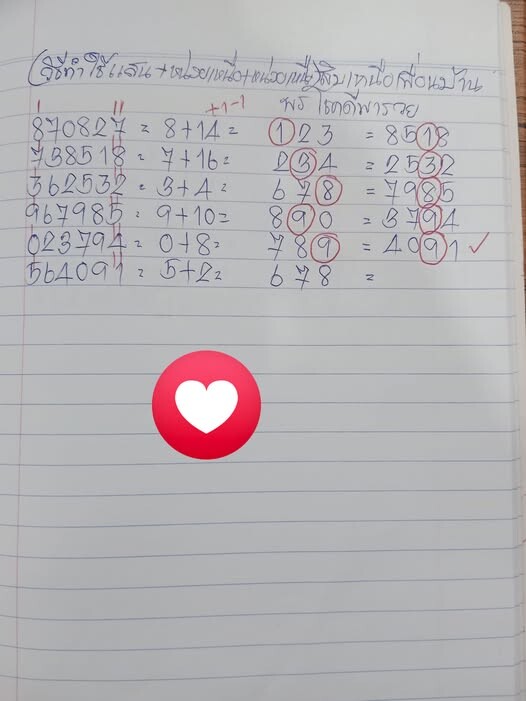 (วิธีทำใช้แสน+หน่วยเหนือ+หน่วยเหนือ)สิบเหนือเพื่อนบ้าน
+1-1 พร โชคดีพารวย
870827 = 8+14= 123 = 8518
758518 = 7+16= 234 = 2532
362532 = 3+4= 678 = 7985
967985 = 9+10= 890 = 3794
023794 = 0+8= 789 = 4091 ✓
564091 = 5+2= 678 =